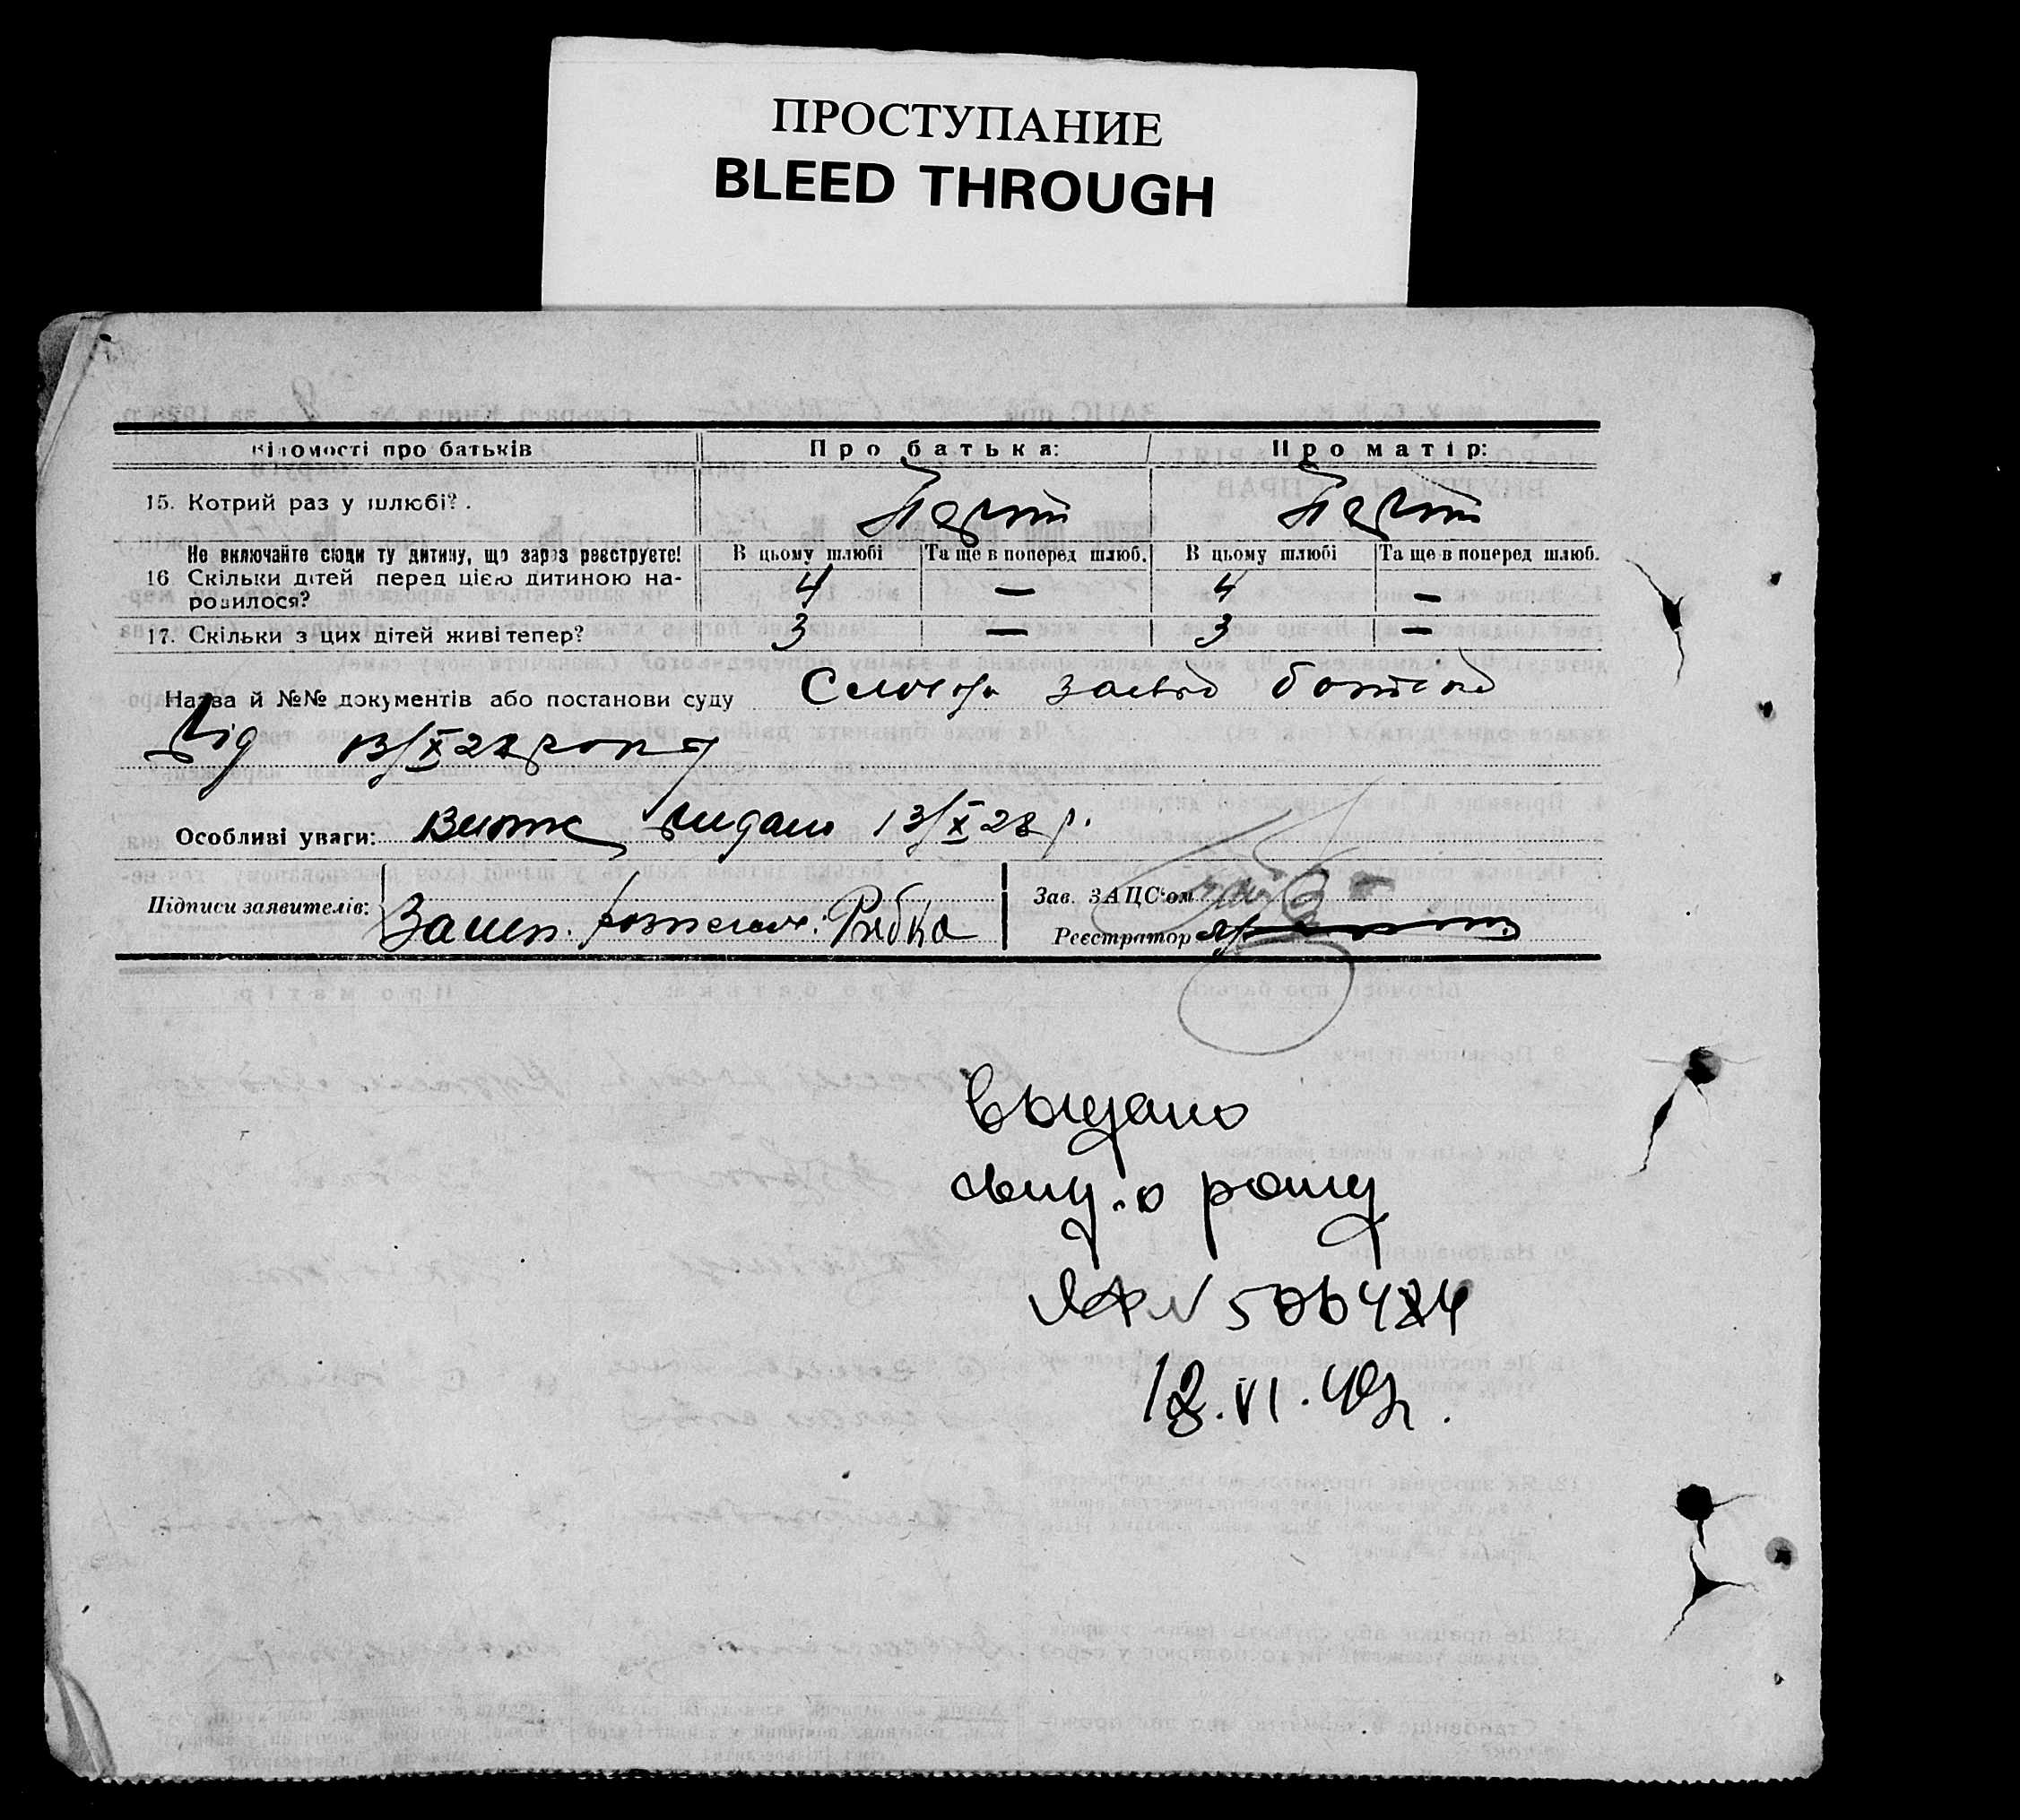 ПРОСТУПАНИЕ
BLEED THROUGH
Відомості про батьків Про батька: Про матір:
15. Котрий раз у шлюбі?.
Не включайте сюди ту дитину, що зараз реєструєте! В цьому шлюбі Та ще в поперед шлюб. В цьому шлюбі Та ще в поперед шлюб.
16 Скільки дітей перед цією дитиною на- 4 — 4 —
родилося?
17. Скільки з цих дітей живі тепер? 3 — 3 —
Назва й №№ документів або постанови суду
Від 13/X 28 року
Особливі уваги: Витяг видано 13/X 28 р.
Підписи заявителів: Рябка
Зав. ЗАЦС'ом
Реєстратор
Выдано
свид. о рожд
VI.